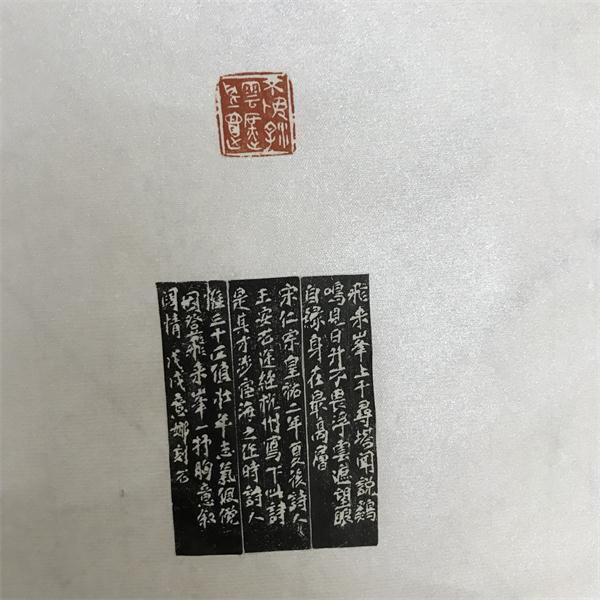 不畏浮
雲遮
望眼
飛来峯上千尋塔聞説鷄
鳴見日升不畏浮雲遮望眼
自緣身在最高層
宋仁宗皇祐二年夏後詩人
王安石途經杭州寫下此詩
是其才涉宦海之途時詩人
三十正值壮年志氣倜儻
因登飛来峯一抒胸意叙
國情 戊戌意娜刻石